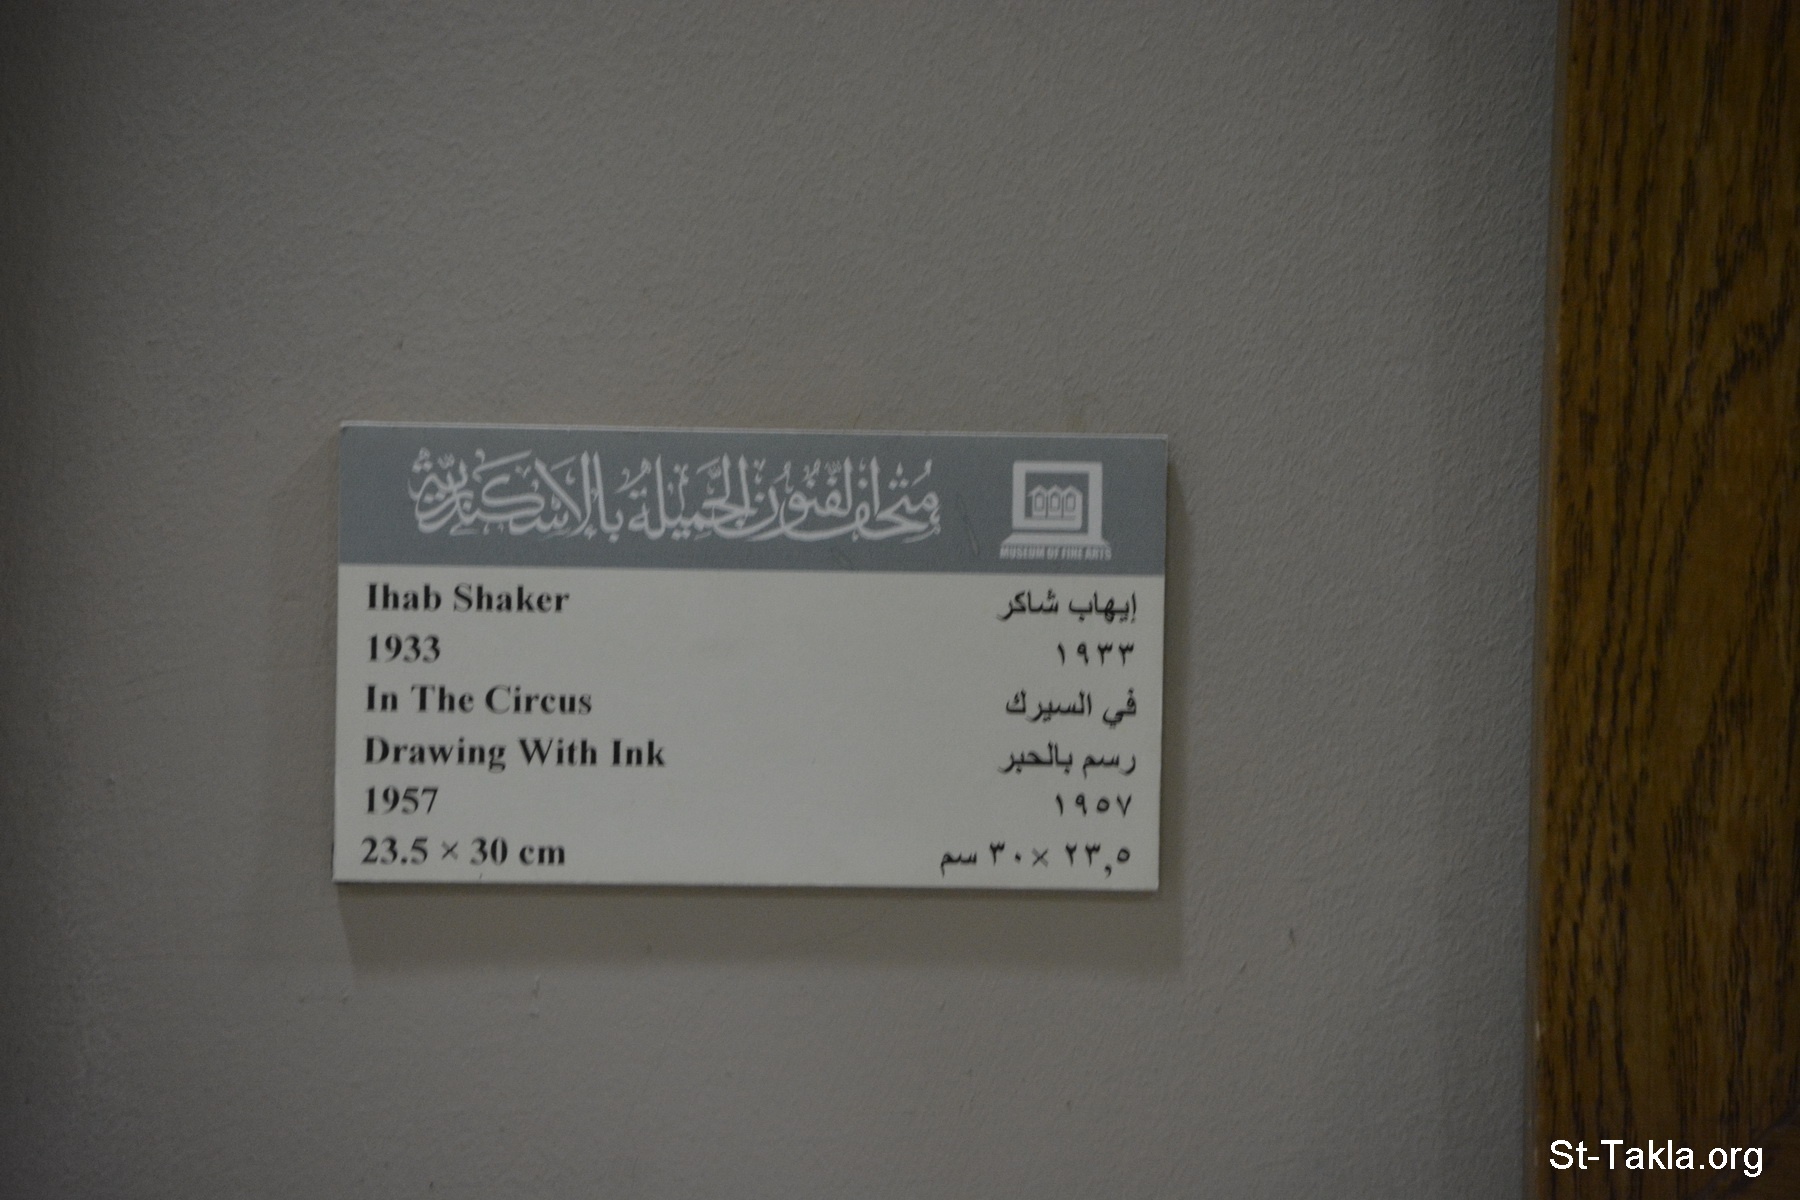 مُتْحَف الفُنُون الجَميلة بالاسكندرية
MUSEUM OF FINE ARTS
Ihab Shaker
إيهاب شاكر
1933
١٩٣٣
In The Circus
في السيرك
Drawing With Ink
رسم بالحبر
1957
١٩٥٧
23.5 × 30 cm
٢٣,٥ ×٣٠ سم
St-Takla.org